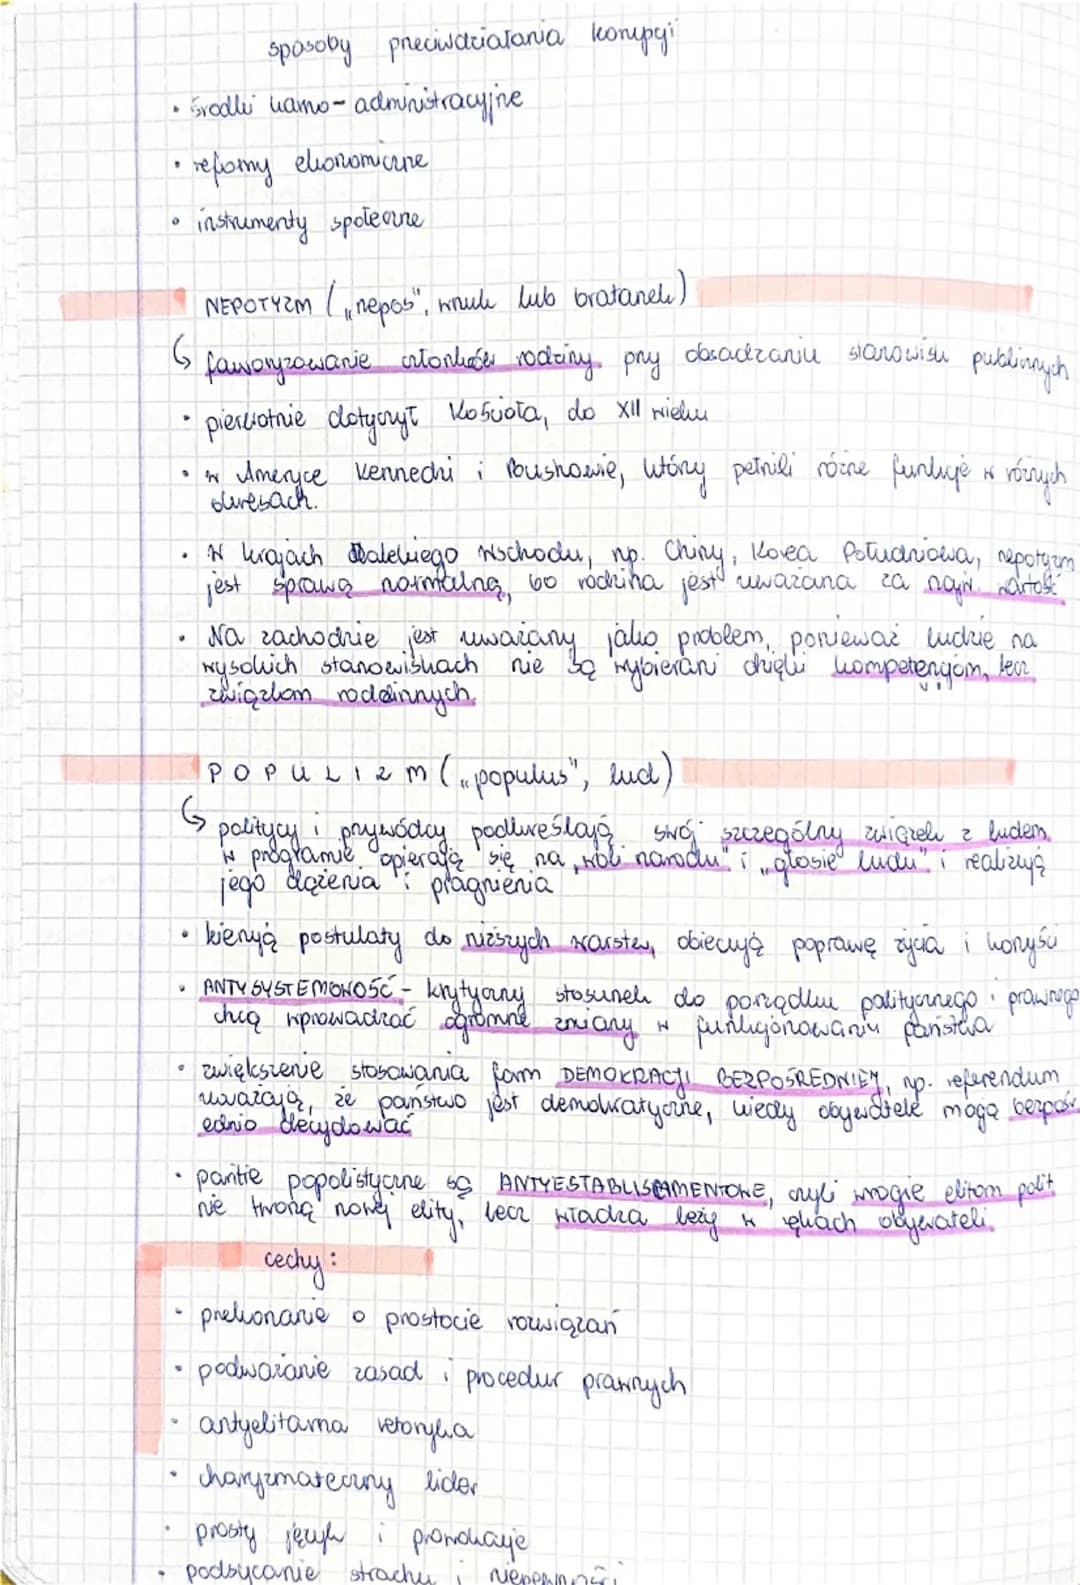 sposoby przeciwdziałania korupcji
• środki karno-administracyjne
• reformy ekonomiczne
• instrumenty społeczne
NEPOTYZM („nepos", wnuk lub bratanek)
↳ faworyzowanie członków rodziny przy obsadzaniu stanowisk publicznych
• pierwotnie dotyczył Kościoła, do XII wieku
• w Ameryce Kennedni i Bushowie, którzy pełnili różne funkcje w różnych
okresach.
• W krajach Dalekiego Wschodu, np. Chiny, Korea Południowa, nepotyzm
jest sprawą normalną, bo rodzina jest uważana za najw. wartość
• Na zachodzie jest uważany jako problem, ponieważ ludzie na
wysokich stanowiskach nie są wybierani dzięki kompetencjom, lecz
związkom rodzinnych.
POPULIZM („populus", lud)
↳ politycy i przywódcy podkreślają swój szczególny związek z ludem.
w programie opierają się na „woli narodu" i „głosie ludu" i realizują
jego dążenia i pragnienia
• kierują postulaty do niższych warstw, obiecują poprawę życia i korzyści
• ANTYSYSTEMOWOŚĆ - krytyczny stosunek do porządku politycznego i prawnego
chcą wprowadzać ogromne zmiany w funkcjonowaniu państwa
• zwiększenie stosowania form DEMOKRACJI BEZPOŚREDNIEJ, np. referendum
uważają, że państwo jest demokratyczne, kiedy obywatele mogą bezpośr
ednio decydować
• partie popolistyczne są ANTYESTABLISHMENTOWE, czyli wrogie elitom polit
nie tworzą nowej elity, lecz władza leży w rękach obywateli.
cechy:
• przekonanie o prostocie rozwiązań
• podważanie zasad i procedur prawnych
• antyelitarna retoryka
• charyzmateczny lider
• prosty język i prowokacje
• podsycanie strachu i niepewności